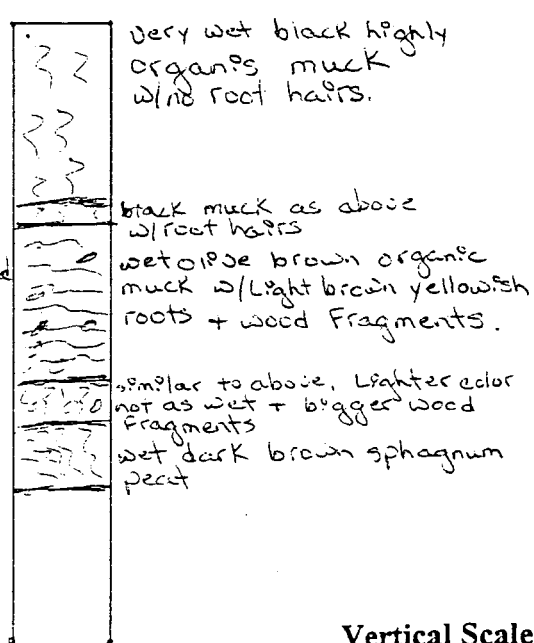 very wet black highly
organis muck
w/no root hairs.
black muck as above
w/root hairs
wet olive brown organic
muck w/Light brown yellowish
roots + wood Fragments.
similar to above, Lighter color
not as wet + bigger wood
Fragments
wet dark brown sphagnum
peat
Vertical Scale